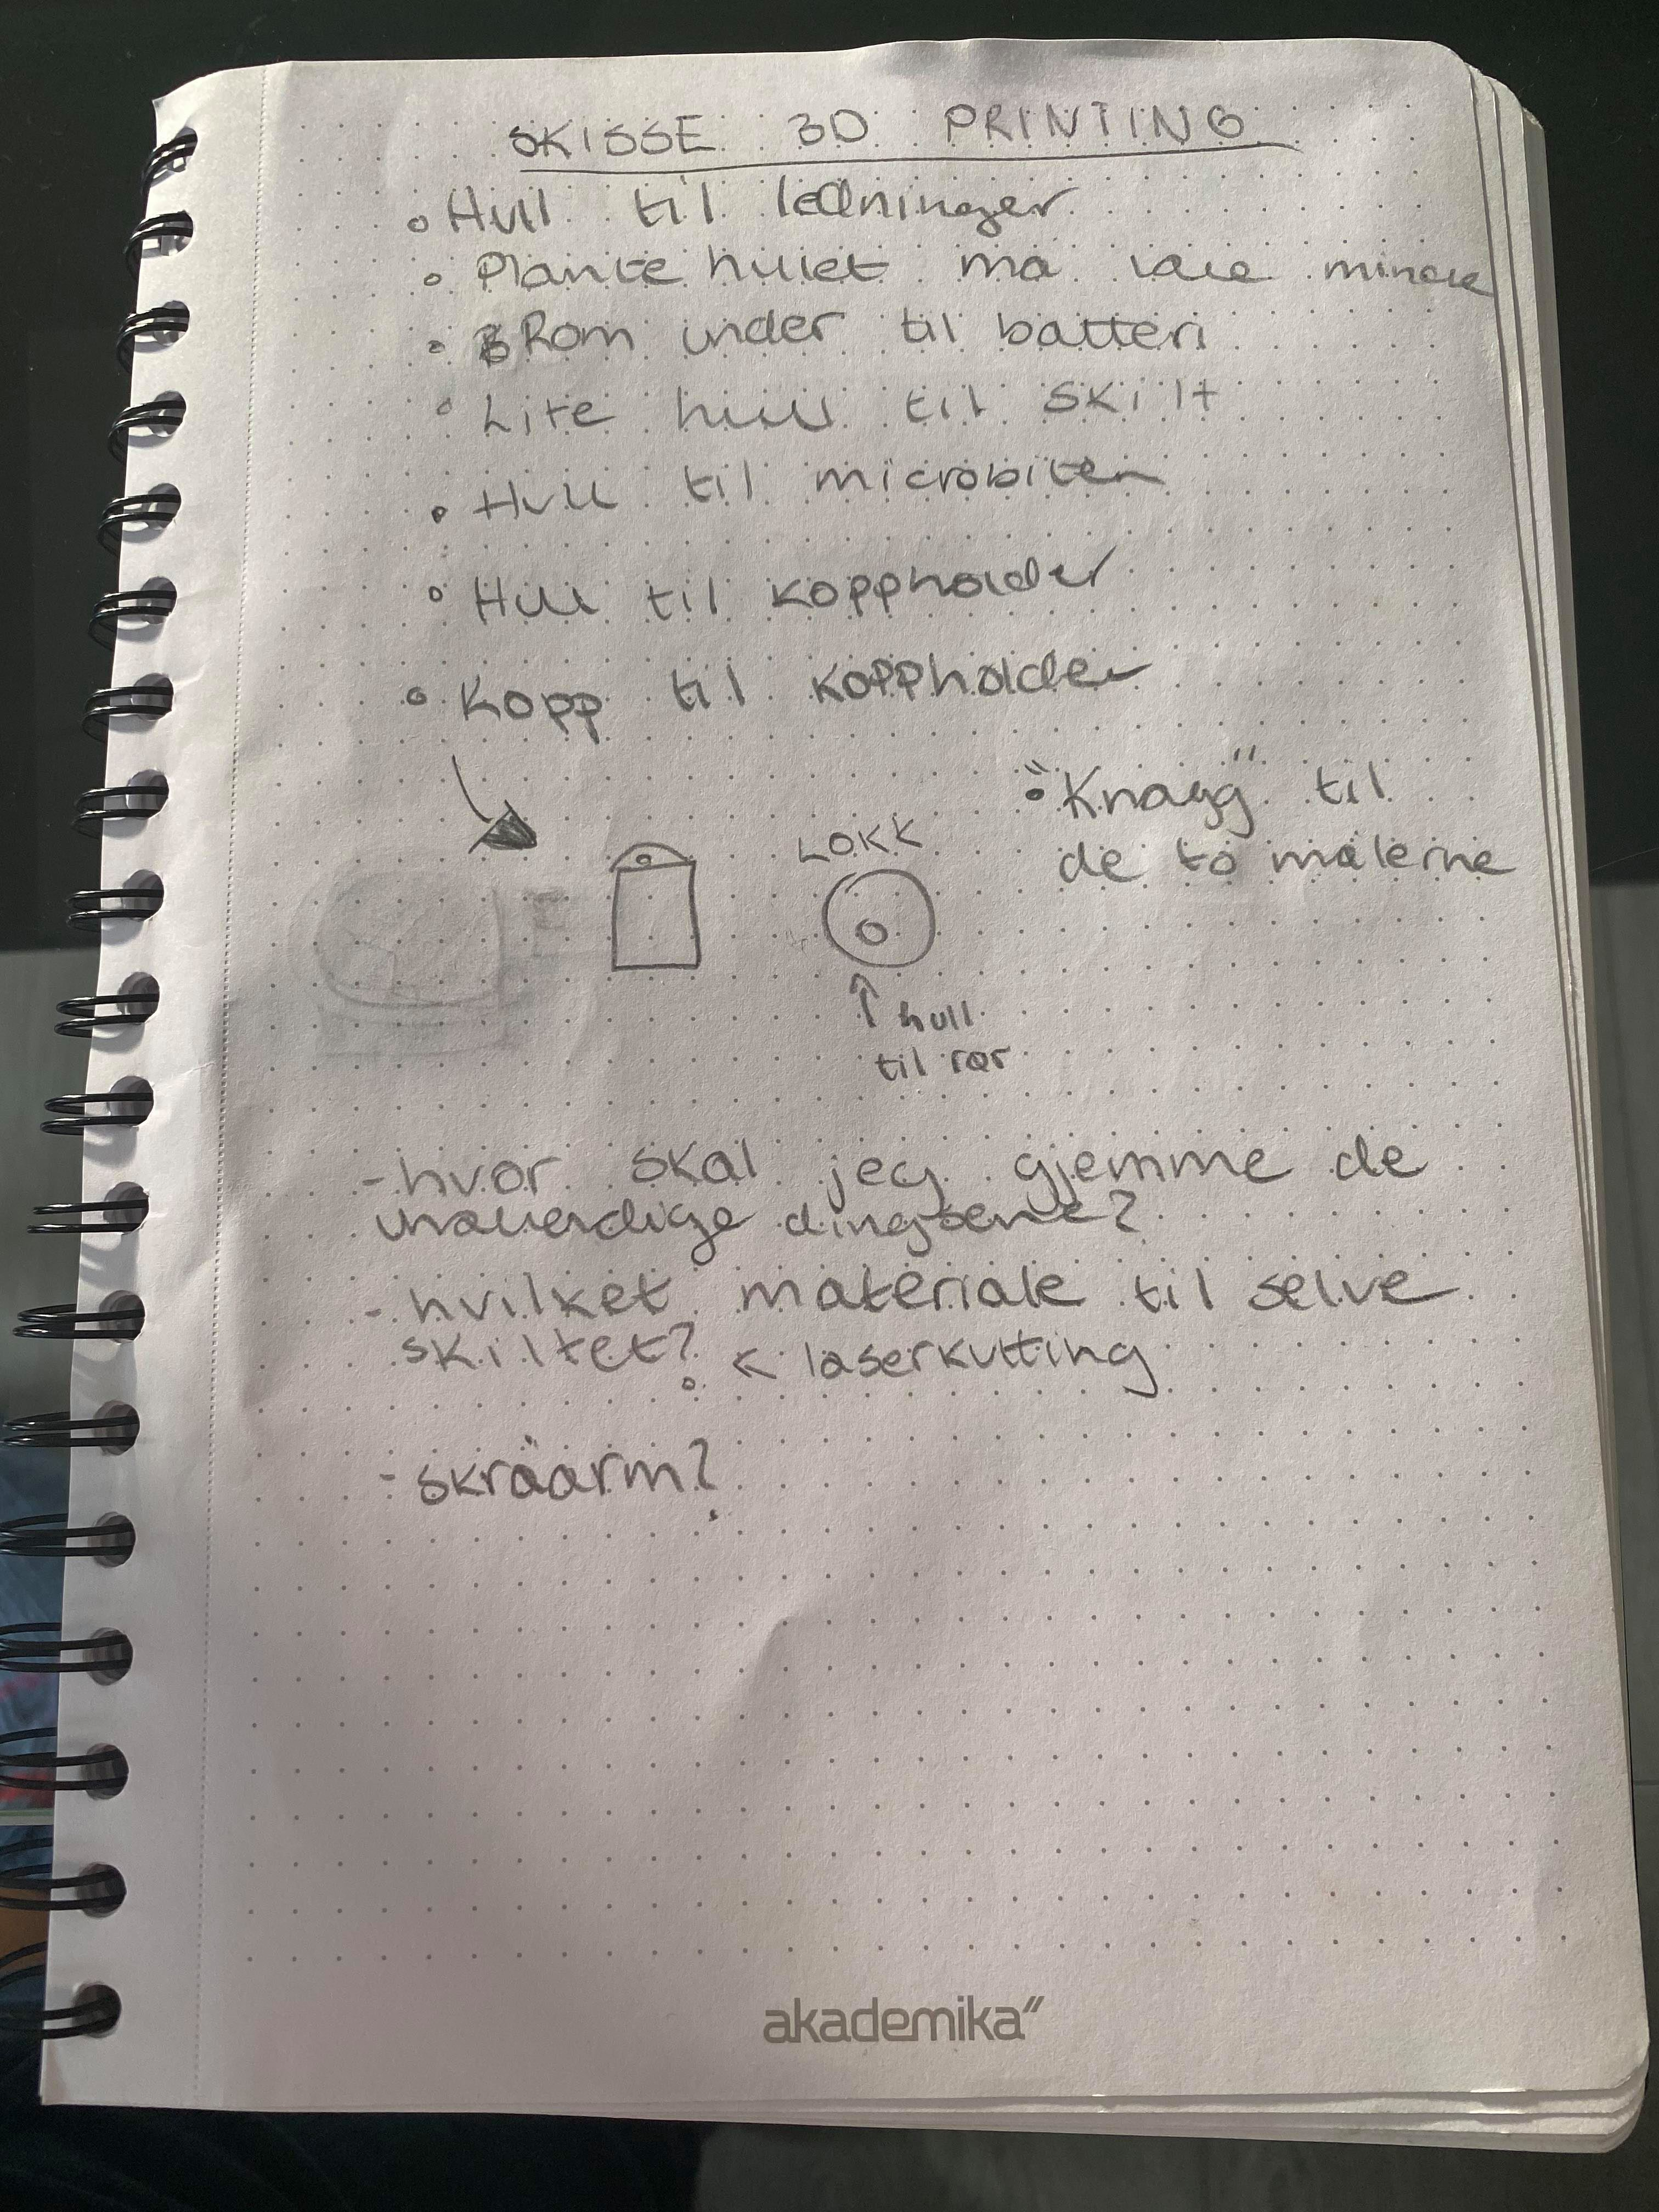 SKISSE 3D PRINTING
Hull til ledninger
Plante hullet må være mindre
Rom under til batteri
Lite hull til skilt
Hull til microbiten
Hull til koppholder
Kopp til koppholder
"Knagg" til
de to målerne
LOKK
hull
til rør
- hvor skal jeg gjemme de
unødvendige dingsene?
- hvilket materiale til selve
skiltet? ← laserkutting
- skråarm?
akademika